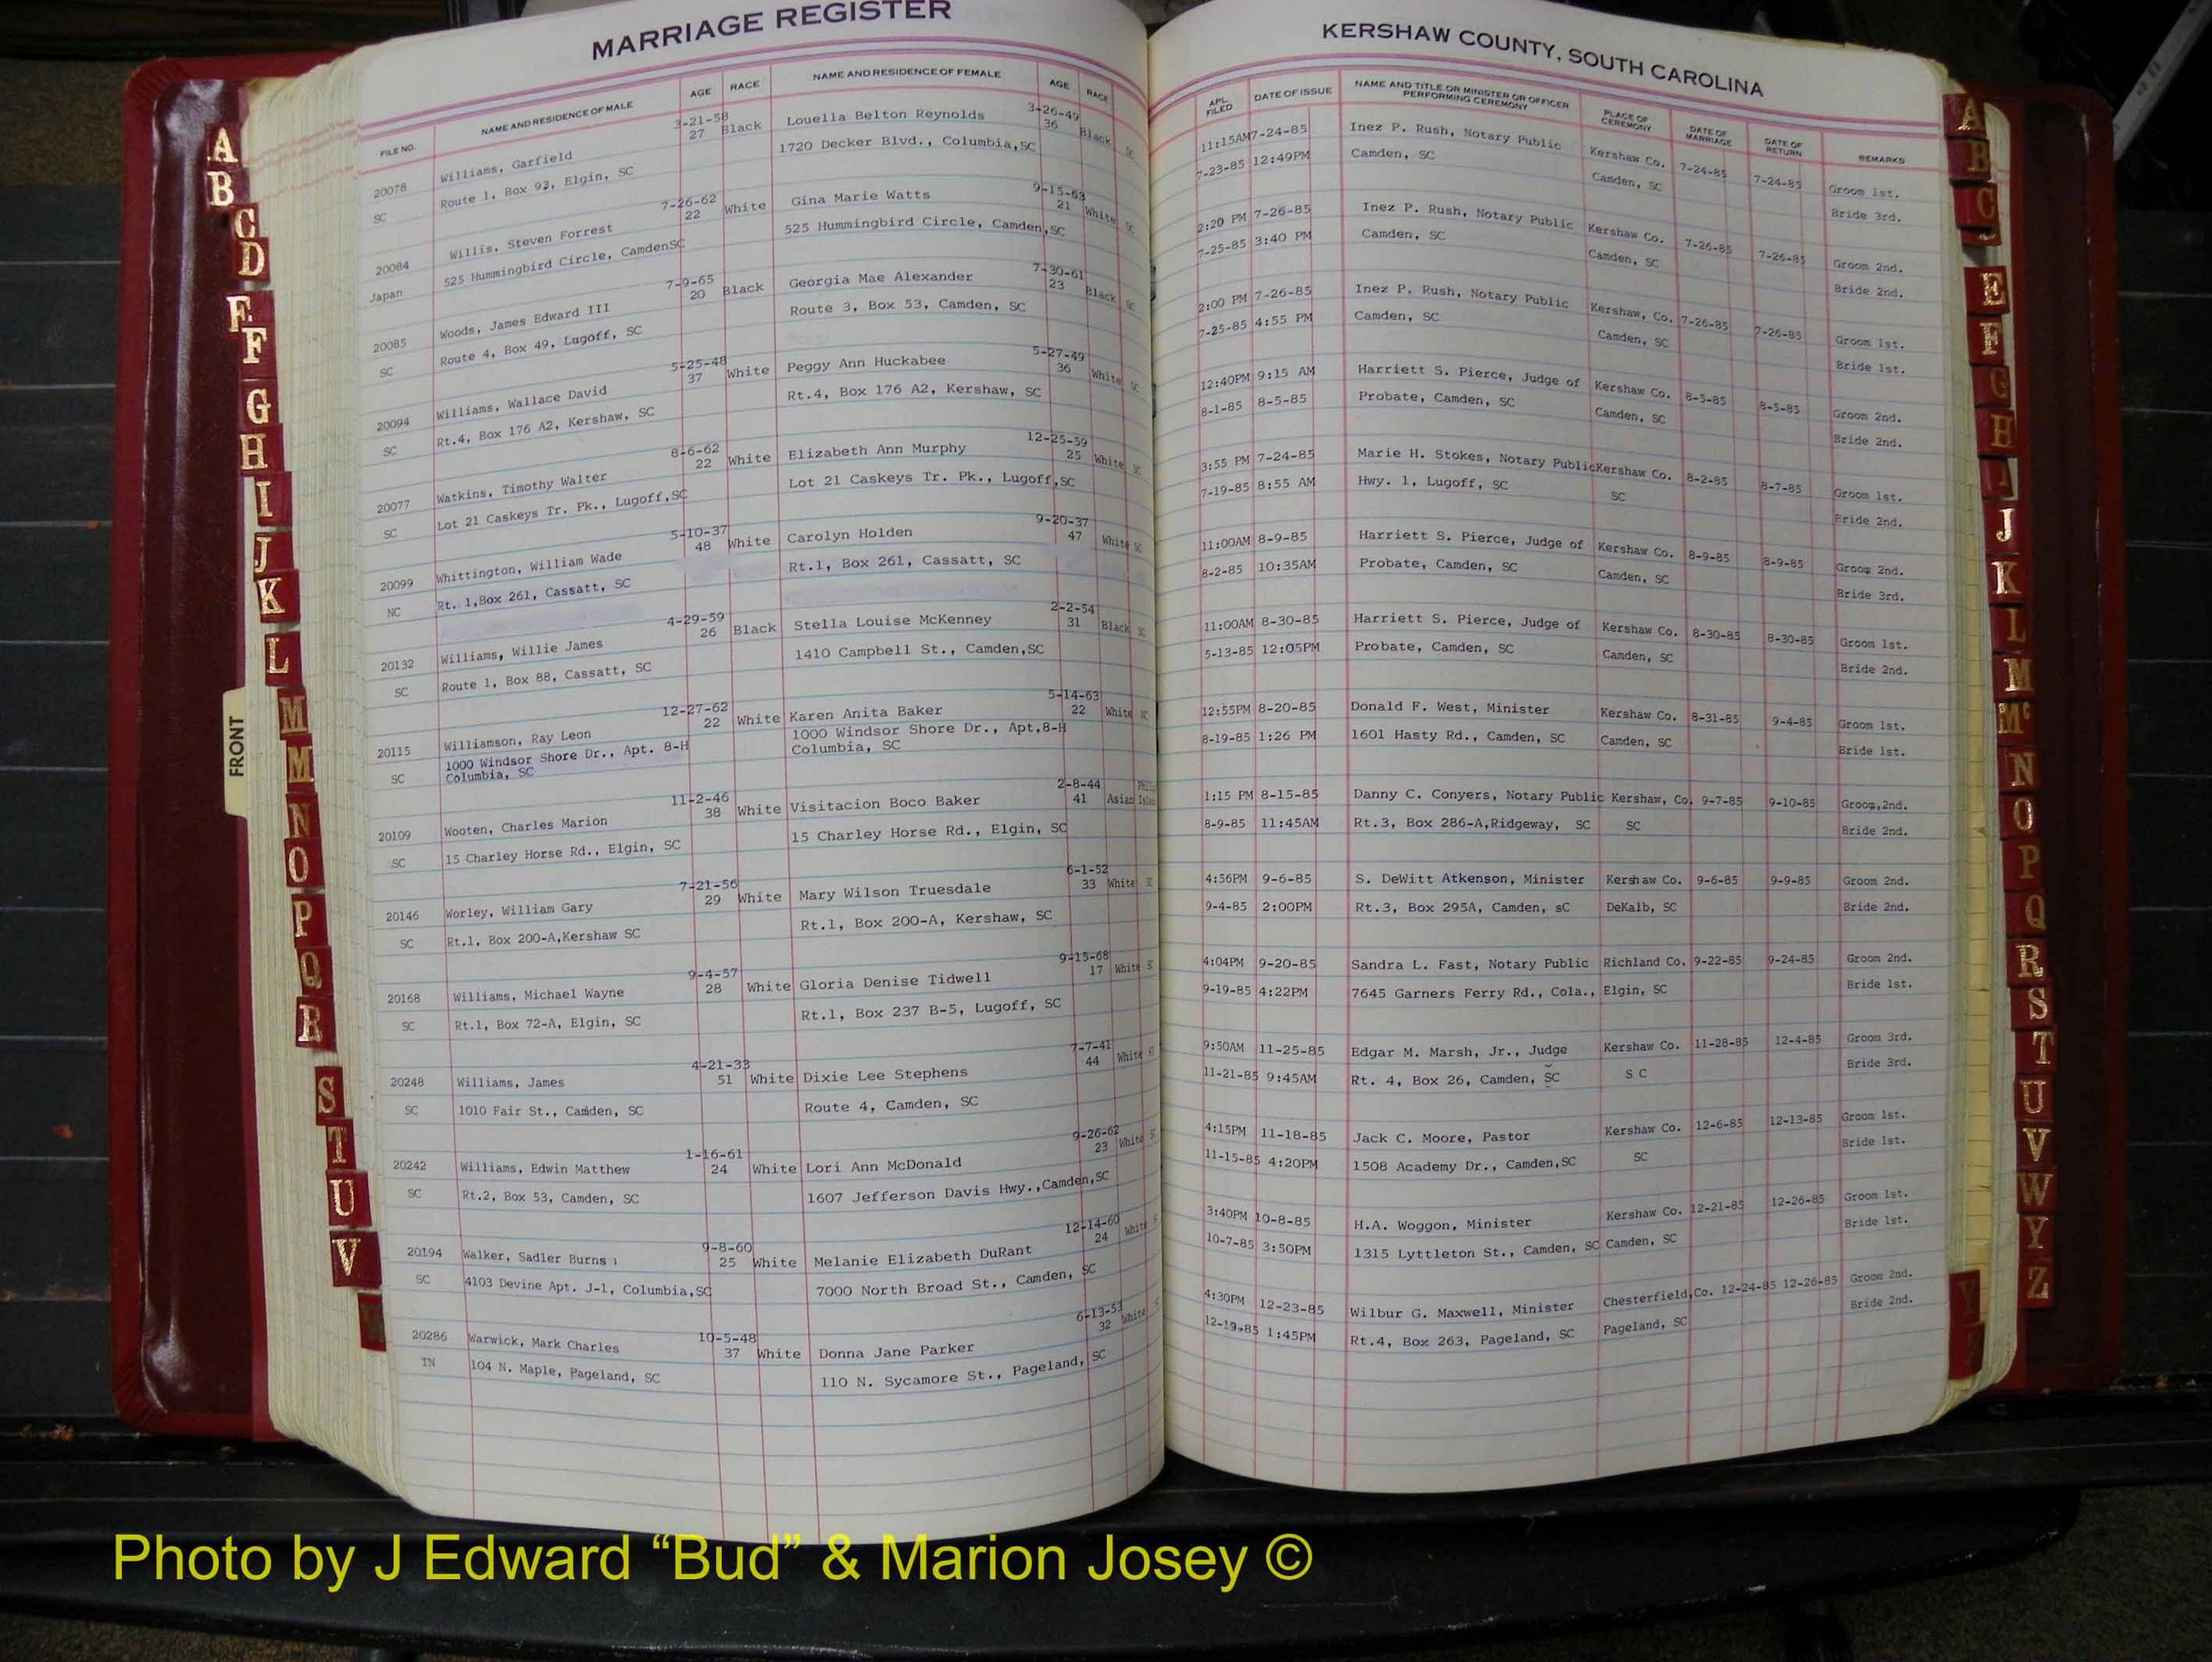 MARRIAGE REGISTER
FILE NO. NAME AND RESIDENCE OF MALE AGE RACE NAME AND RESIDENCE OF FEMALE AGE RACE
3-21-58 3-26-49
20078 Williams, Garfield 27 Black Louella Belton Reynolds 36 Black
SC Route 1, Box 92, Elgin, SC 1720 Decker Blvd., Columbia,SC SC
7-26-62 9-15-63
20084 Willis, Steven Forrest 22 White Gina Marie Watts 21 White SC
Japan 525 Hummingbird Circle, CamdenSC 525 Hummingbird Circle, Camden,SC
7-9-65 7-30-61
20085 Woods, James Edward III 20 Black Georgia Mae Alexander 23 Black SC
SC Route 4, Box 49, Lugoff, SC Route 3, Box 53, Camden, SC
5-25-48 5-27-49
20094 Williams, Wallace David 37 White Peggy Ann Huckabee 36 White SC
SC Rt.4, Box 176 A2, Kershaw, SC Rt.4, Box 176 A2, Kershaw, SC
8-6-62 12-25-59
20077 Watkins, Timothy Walter 22 White Elizabeth Ann Murphy 25 White SC
SC Lot 21 Caskeys Tr. Pk., Lugoff,SC Lot 21 Caskeys Tr. Pk., Lugoff,SC
5-10-37 9-20-37
20099 Whittington, William Wade 48 White Carolyn Holden 47 White SC
NC Rt. 1,Box 261, Cassatt, SC Rt.1, Box 261, Cassatt, SC
4-29-59 2-2-54
20132 Williams, Willie James 26 Black Stella Louise McKenney 31 Black SC
SC Route 1, Box 88, Cassatt, SC 1410 Campbell St., Camden,SC
12-27-62 5-14-63
20115 Williamson, Ray Leon 22 White Karen Anita Baker 22 White NC
SC 1000 Windsor Shore Dr., Apt. 8-H 1000 Windsor Shore Dr., Apt,8-H
Columbia, SC Columbia, SC
11-2-46 2-8-44
20109 Wooten, Charles Marion 38 White Visitacion Boco Baker 41 Asian
SC 15 Charley Horse Rd., Elgin, SC 15 Charley Horse Rd., Elgin, SC
7-21-56 6-1-52
20146 Worley, William Gary 29 White Mary Wilson Truesdale 33 White SC
SC Rt.1, Box 200-A,Kershaw SC Rt.1, Box 200-A, Kershaw, SC
9-4-57 9-15-68
20168 Williams, Michael Wayne 28 White Gloria Denise Tidwell 17 White SC
SC Rt.1, Box 72-A, Elgin, SC Rt.1, Box 237 B-5, Lugoff, SC
4-21-33 7-7-41
20248 Williams, James 51 White Dixie Lee Stephens 44 White
SC 1010 Fair St., Camden, SC Route 4, Camden, SC
1-16-61 9-26-62
20242 Williams, Edwin Matthew 24 White Lori Ann McDonald 23 White SC
SC Rt.2, Box 53, Camden, SC 1607 Jefferson Davis Hwy.,Camden,SC
9-8-60 12-14-60
20194 Walker, Sadler Burns 25 White Melanie Elizabeth DuRant 24 White
SC 4103 Devine Apt. J-1, Columbia,SC 7000 North Broad St., Camden, SC
10-5-48 6-13-53
20286 Warwick, Mark Charles 37 White Donna Jane Parker 32 White
TN 104 N. Maple, Pageland, SC 110 N. Sycamore St., Pageland, SC
KERSHAW COUNTY, SOUTH CAROLINA
APL. FILED DATE OF ISSUE NAME AND TITLE OR MINISTER OR OFFICER PERFORMING CEREMONY PLACE OF CEREMONY DATE OF MARRIAGE DATE OF RETURN REMARKS
11:15AM 7-24-85 Inez P. Rush, Notary Public Kershaw Co. 7-24-85 7-24-85 Groom 1st.
7-23-85 12:49PM Camden, SC Camden, SC Bride 3rd.
2:20 PM 7-26-85 Inez P. Rush, Notary Public Kershaw Co. 7-26-85 7-26-85 Groom 2nd.
7-25-85 3:40 PM Camden, SC Camden, SC Bride 2nd.
2:00 PM 7-26-85 Inez P. Rush, Notary Public Kershaw, Co. 7-26-85 7-26-85 Groom 1st.
7-25-85 4:55 PM Camden, SC Camden, SC Bride 1st.
12:40PM 9:15 AM Harriett S. Pierce, Judge of Kershaw Co. 8-5-85 8-5-85 Groom 2nd.
8-1-85 8-5-85 Probate, Camden, SC Camden, SC Bride 2nd.
3:55 PM 7-24-85 Marie H. Stokes, Notary Public Kershaw Co. 8-2-85 8-7-85 Groom 1st.
7-19-85 8:55 AM Hwy. 1, Lugoff, SC SC Bride 2nd.
11:00AM 8-9-85 Harriett S. Pierce, Judge of Kershaw Co. 8-9-85 8-9-85 Groom 2nd.
8-2-85 10:35AM Probate, Camden, SC Camden, SC Bride 3rd.
11:00AM 8-30-85 Harriett S. Pierce, Judge of Kershaw Co. 8-30-85 8-30-85 Groom 1st.
5-13-85 12:05PM Probate, Camden, SC Camden, SC Bride 2nd.
12:55PM 8-20-85 Donald F. West, Minister Kershaw Co. 8-31-85 9-4-85 Groom 1st.
8-19-85 1:26 PM 1601 Hasty Rd., Camden, SC Camden, SC Bride 1st.
1:15 PM 8-15-85 Danny C. Conyers, Notary Public Kershaw, Co. 9-7-85 9-10-85 Groom,2nd.
8-9-85 11:45AM Rt.3, Box 286-A,Ridgeway, SC SC Bride 2nd.
4:56PM 9-6-85 S. DeWitt Atkenson, Minister Kershaw Co. 9-6-85 9-9-85 Groom 2nd.
9-4-85 2:00PM Rt.3, Box 295A, Camden, sC DeKalb, SC Bride 2nd.
4:04PM 9-20-85 Sandra L. Fast, Notary Public Richland Co. 9-22-85 9-24-85 Groom 2nd.
9-19-85 4:22PM 7645 Garners Ferry Rd., Cola., Elgin, SC Bride 1st.
9:50AM 11-25-85 Edgar M. Marsh, Jr., Judge Kershaw Co. 11-28-85 12-4-85 Groom 3rd.
11-21-85 9:45AM Rt. 4, Box 26, Camden, SC S C Bride 3rd.
4:15PM 11-18-85 Jack C. Moore, Pastor Kershaw Co. 12-6-85 12-13-85 Groom 1st.
11-15-85 4:20PM 1508 Academy Dr., Camden,SC SC Bride 1st.
3:40PM 10-8-85 H.A. Woggon, Minister Kershaw Co. 12-21-85 12-26-85 Groom 1st.
10-7-85 3:50PM 1315 Lyttleton St., Camden, SC Camden, SC Bride 1st.
4:30PM 12-23-85 Wilbur G. Maxwell, Minister Chesterfield,Co. 12-24-85 12-26-85 Groom 2nd.
12-19-85 1:45PM Rt.4, Box 263, Pageland, SC Pageland, SC Bride 2nd.
A
B
C
D
E
F
G
H
I
J
K
L
M
M
N
O
P
Q
R
S
T
U
V
W
FRONT
A
B
C
E
F
G
H
I
J
K
L
M
Mc
N
O
P
Q
R
S
T
U
V
W
Y
Z
Photo by J Edward “Bud” & Marion Josey ©